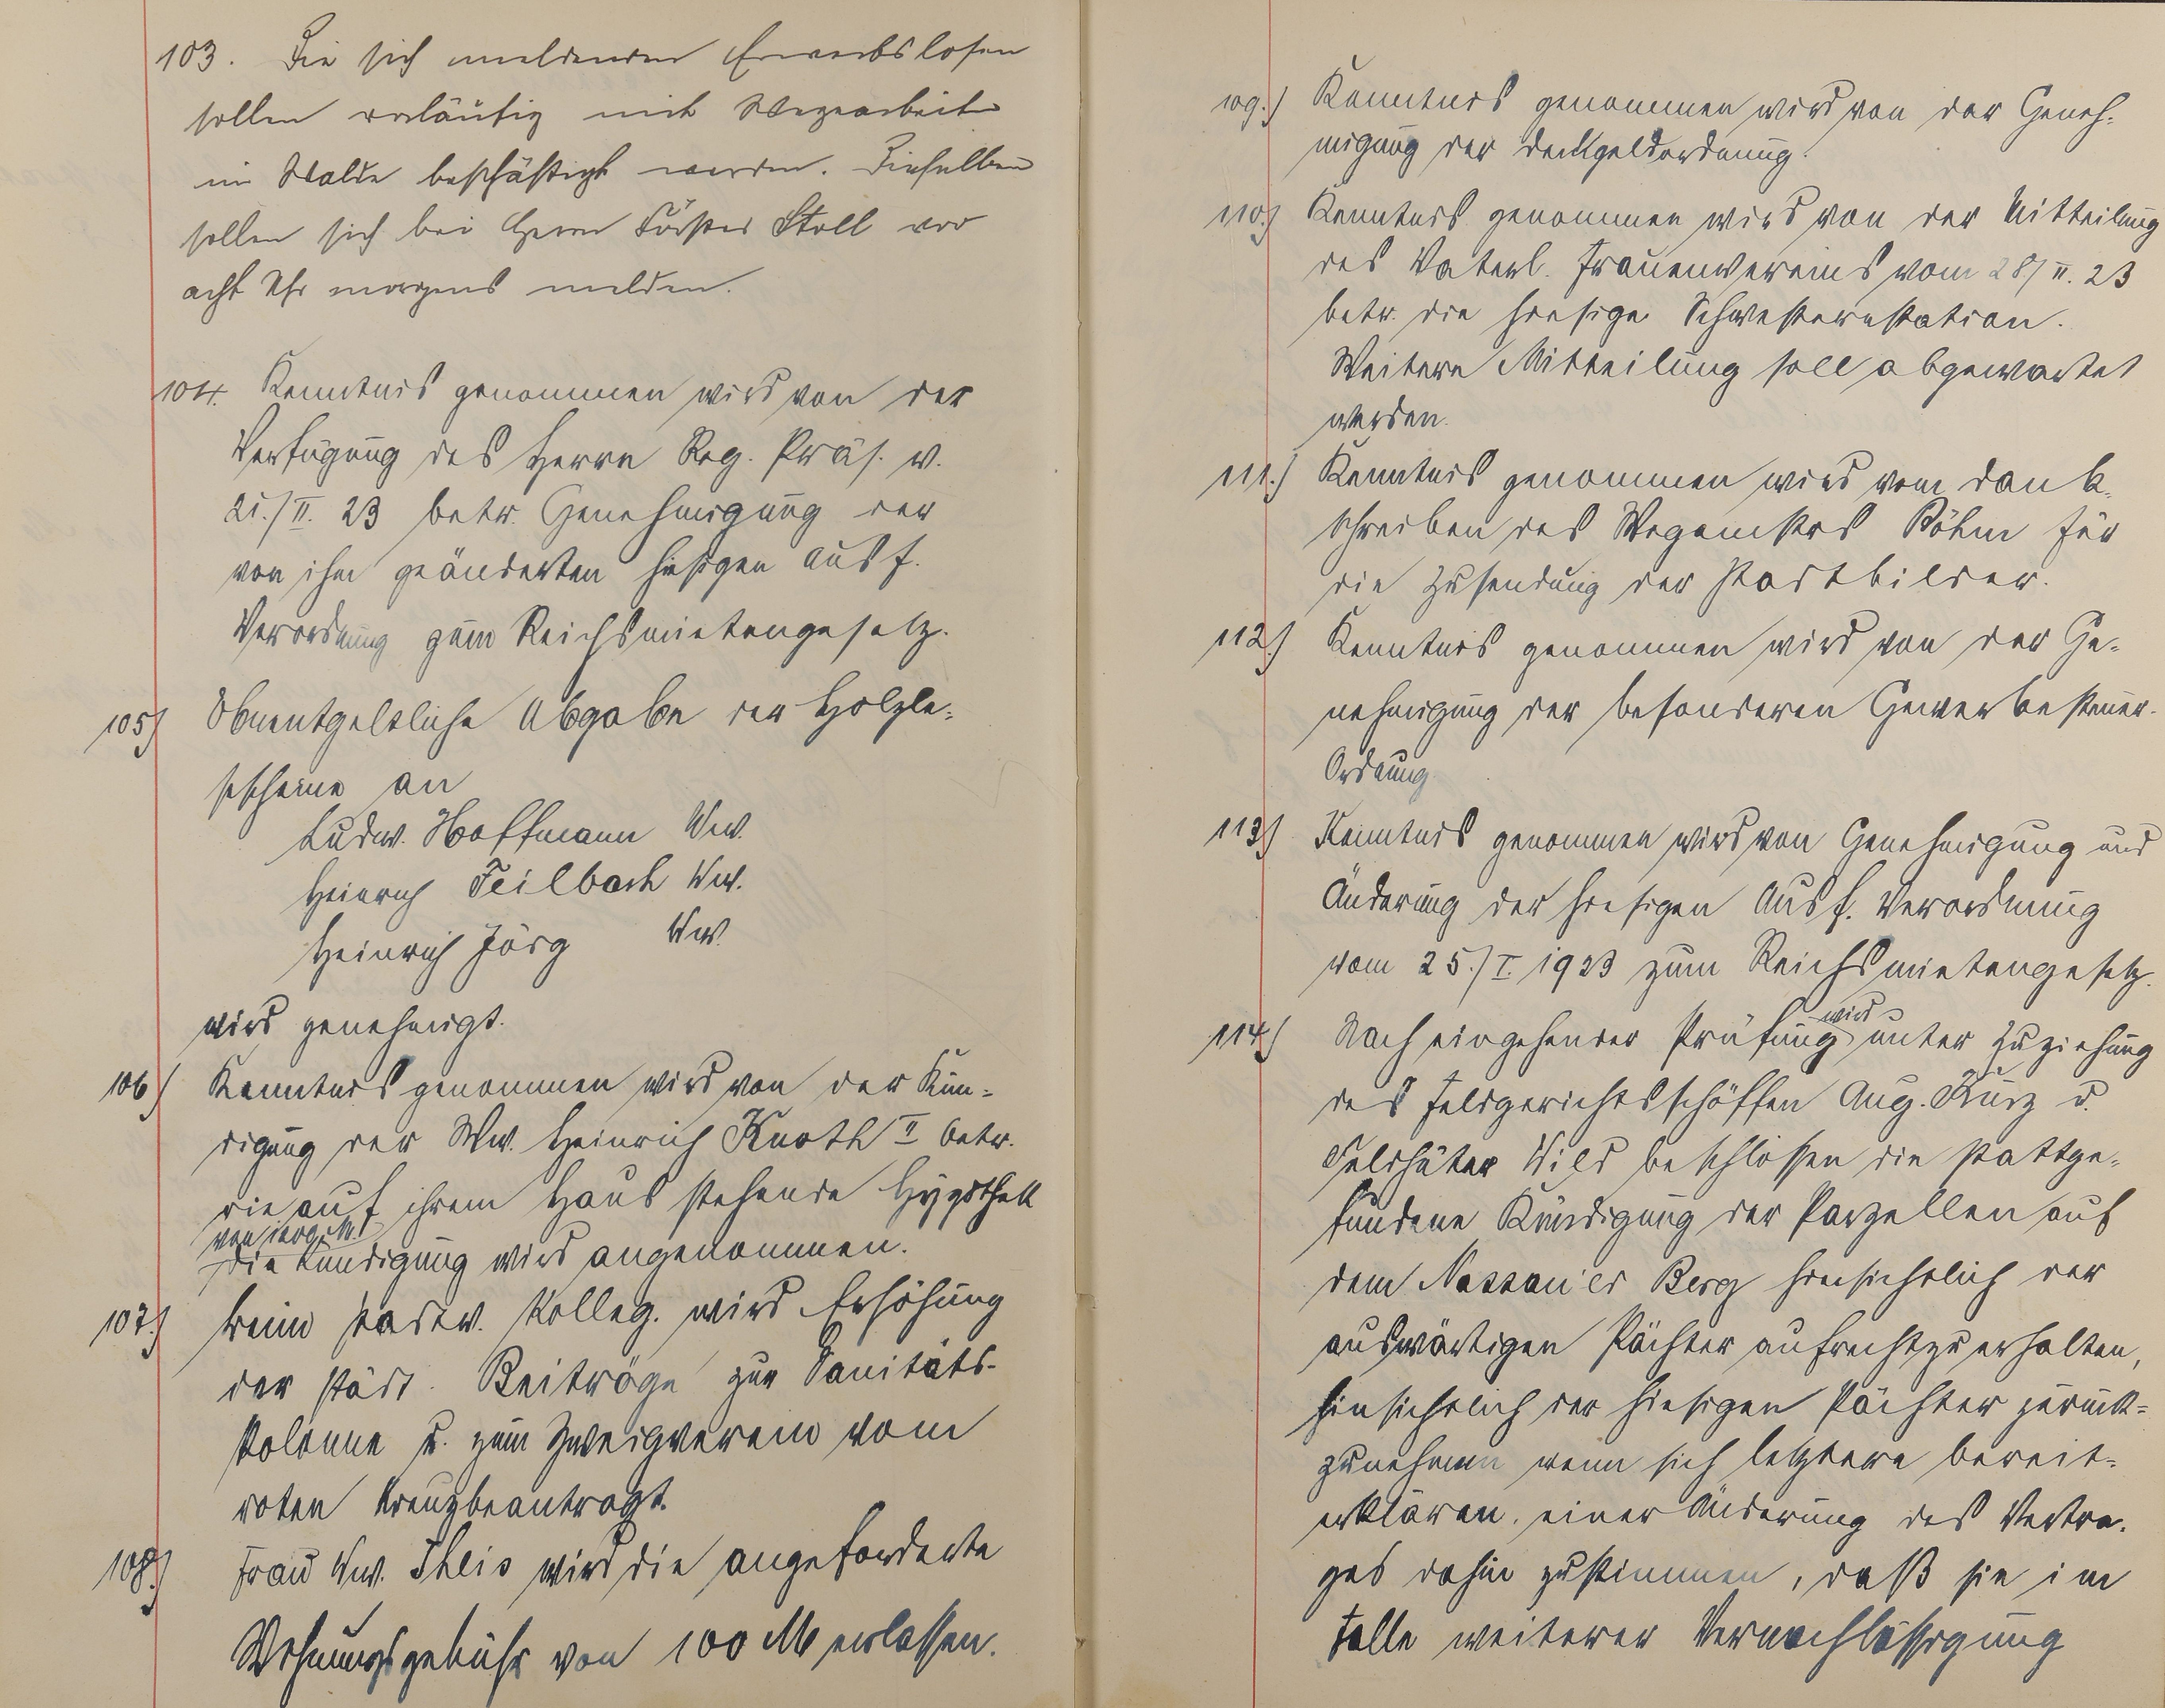 103. Die sich meldenden Erwerbslosen
sollen vorläufig mit Wegearbeiten
im Walde beschäftigt werden. Dieselben
sollen sich bei Herrn Förster Stoll vor
acht Uhr morgens melden.
104. Kenntnis genommen wird von der
Verfügung des Herrn Reg. Präs. v.
21./II. 23 betr. Genehmigung der
von ihm geänderten hiesigen Ausf.
Verordnung zum Reichsmietengesetz.
105) Unentgeltliche Abgabe der Holzle-
sescheine an
Ludw. Hoffmann Ww.
Heinrich Feilbach Ww.
Heinrich Jörg Ww.
wird genehmigt.
106) Kenntnis genommen wird von der Kün-
digung der Ww. Heinrich Knoth II betr.
die auf ihrem Haus stehende Hypothek
von M.
Die Kündigung wird angenommen.
107.) Beim Stadtv. Kolleg. wird Erhöhung
der städt. Beiträge zur Sanitäts-
kolonne u. zum Zweigverein vom
roten Kreuz beantragt.
108.) Frau Ww. Theis wird die angeforderte
Wohnungsgebühr von 100 M erlassen.
109.) Kenntnis genommen wird von der Geneh-
migung der Deckgeldordnung.
110.) Kenntnis genommen wird von der Mitteilung
des Vaterl. Frauenvereins vom 28/II. 23
betr. die hiesige Schwesternstation.
Weitere Mitteilung soll abgewartet
werden.
111.) Kenntnis genommen wird vom Dank-
schreiben des Böhm für
die Zusendung der Postbilder.
112.) Kenntnis genommen wird von der Ge-
nehmigung der besonderen Gewerbesteuer-
Ordnung
113) Kenntnis genommen wird von Genehmigung und
Änderung der hiesigen Ausf. Verordnung
vom 25./I. 1923 zum Reichsmietengesetz.
114) Nach eingehender Prüfung wird unter Zuziehung
des Feldgerichtsschöffen Aug. Kurz u.
Feldhüter Wild beschlossen die stattge-
fundene Kündigung der Parzellen auf
dem Nassau'er Berg hinsichtlich der
auswärtigen Pächter aufrecht zu erhalten,
hinsichtlich der hiesigen Pächter zurück-
zunehmen wenn sich letztere bereit-
erklären, einer Änderung des Vertra-
ges dahin zustimmen, daß sie im
Falle weiterer Vernachlässigung